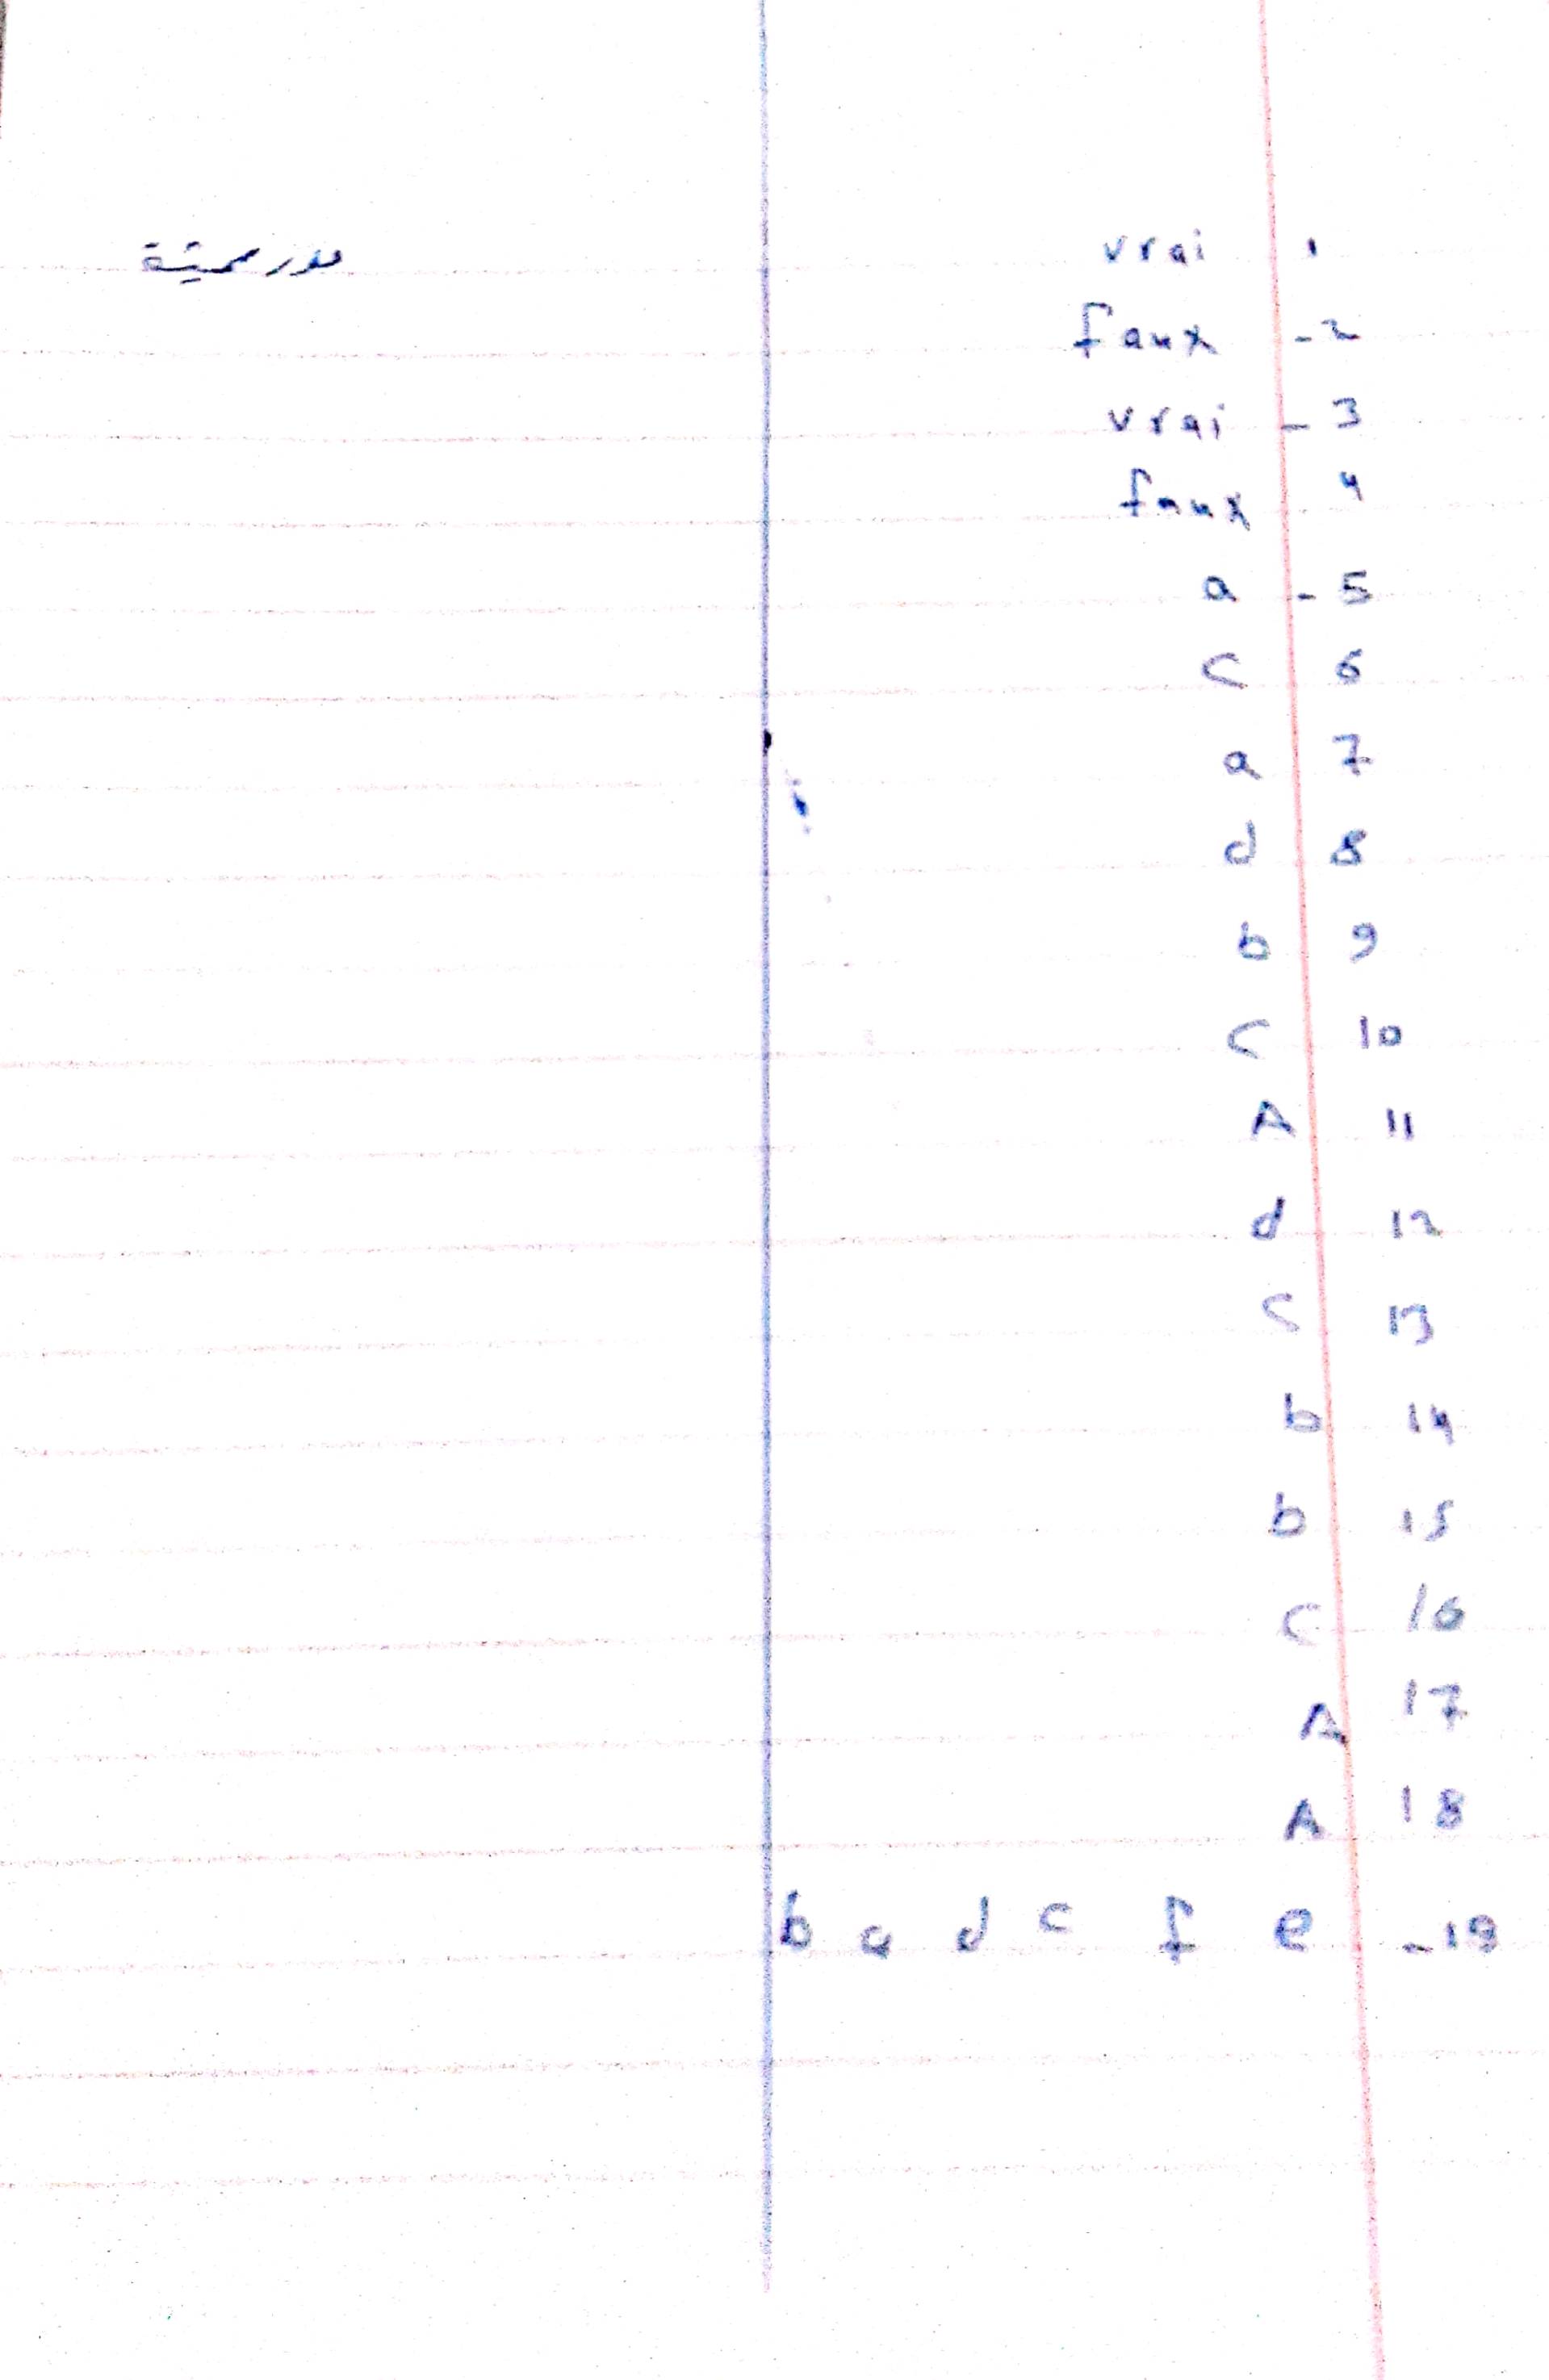 vrai 1
faux - 2
vrai - 3
faux 4
a - 5
c 6
a 7
d 8
b 9
c 10
A 11
d 12
c 13
b 14
b 15
c 16
A 17
A 18
b a d c f e - 19